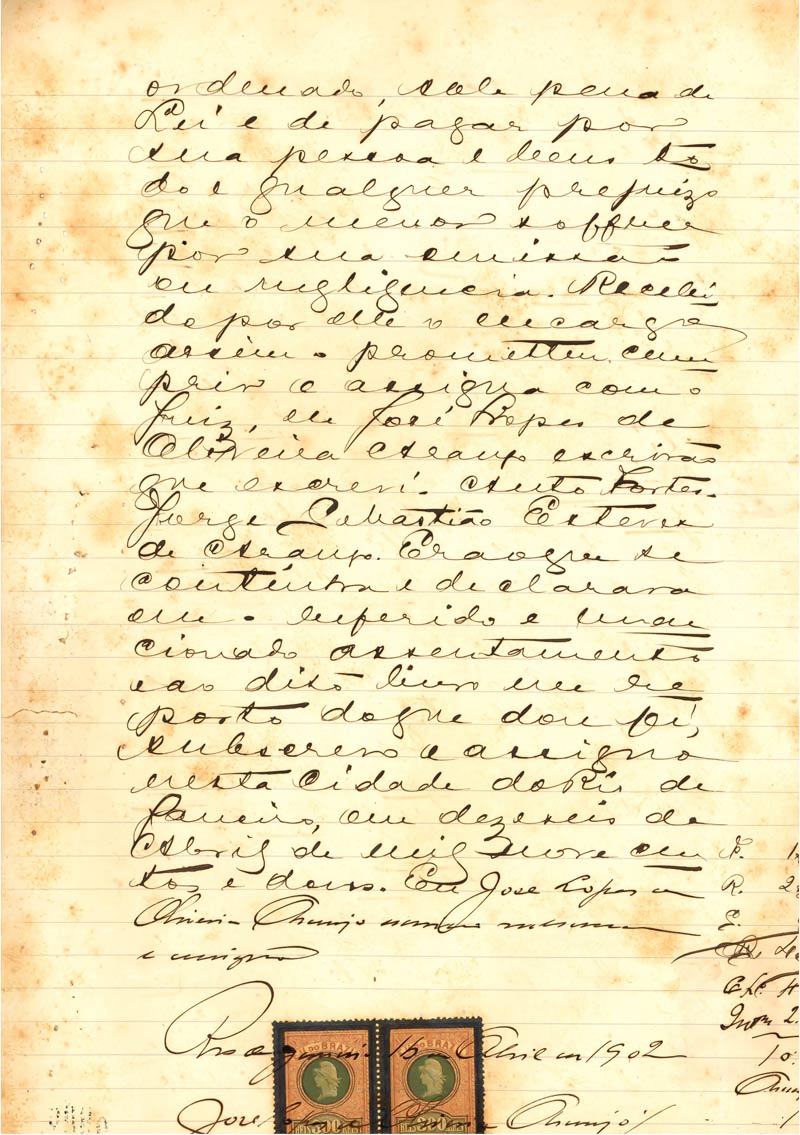 ordenado, sob pena de
Lei e de pagar por
sua pessoa e bens to
do e qualquer prejuizo
que o menor soffrer
por sua omissão
ou negligencia. Recebi
do por elle o encargo
assim o prometteu cum
prir e assigna com o
Juiz, eu José Lopes de
Oliveira Araujo escrivão
que escrevi.
Jorge Sebastião Esteves
de Araujo. Era o que se
continha e declarava
em o referido e men
cionado assentamento
e ao dito livro me re
porto do que dou fé,
subscrevo e assigno
nesta Cidade do Rio de
Janeiro, em dezeseis de
Abril de mil nove cen
tos e dous. Eu José Lopes de
Oliveira Araujo
e assigno
Rio de Janeiro 16 de Abril de 1902
REIS 300 REIS 300
José Lopes de Oliveira Araujo
R. 2
E.